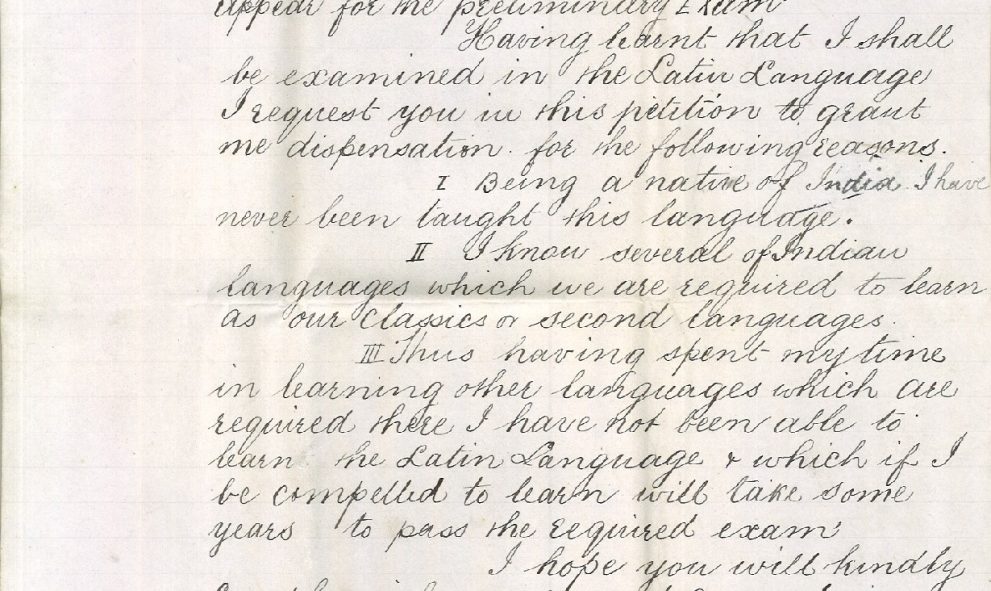 appear for the preliminary Exam
Having learnt that I shall
be examined in the Latin Language
I request you in this petition to grant
me dispensation for the following reasons.
I Being a native of India I have
never been taught this language.
II I know several of Indian
languages which we are required to learn
as our classics or second languages.
III Thus having spent my time
in learning other languages which are
required there I have not been able to
learn the Latin Language & which if I
be compelled to learn will take some
years to pass the required exam
I hope you will kindly